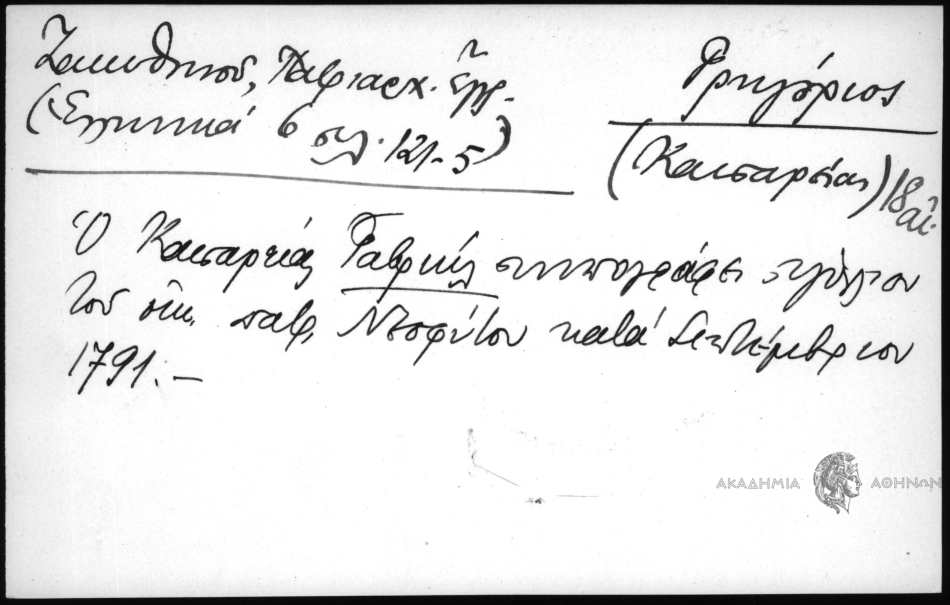 Ζακυθηνοῦ, Πατριαρχ. Ἔγγρ.
(Ἑλληνικά 6 σελ. 121-5)
Γρηγόριος
(Καισαρείας) 18 αἰ.
Ὁ Καισαρείας Γαβριήλ συνυπογράφει σιγίλλιον
τοῦ οἰκ. πατρ. Νεοφύτου κατά Σεπτέμβριον
1791.—
ΑΚΑΔΗΜΙΑ ΑΘΗΝΩΝ